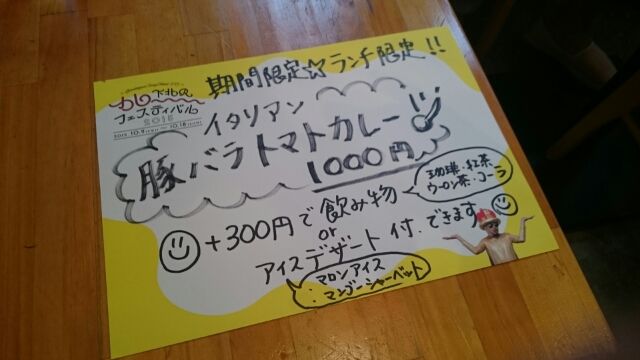 期間限定☆ランチ限定!!
カレー
フェスティバル
2015
イタリアン
豚バラトマトカレー
1000円
+300円で飲み物
珈琲・紅茶
ウーロン茶・コーラ
or
アイスデザート付、できます
マロンアイス
マンゴーシャーベット